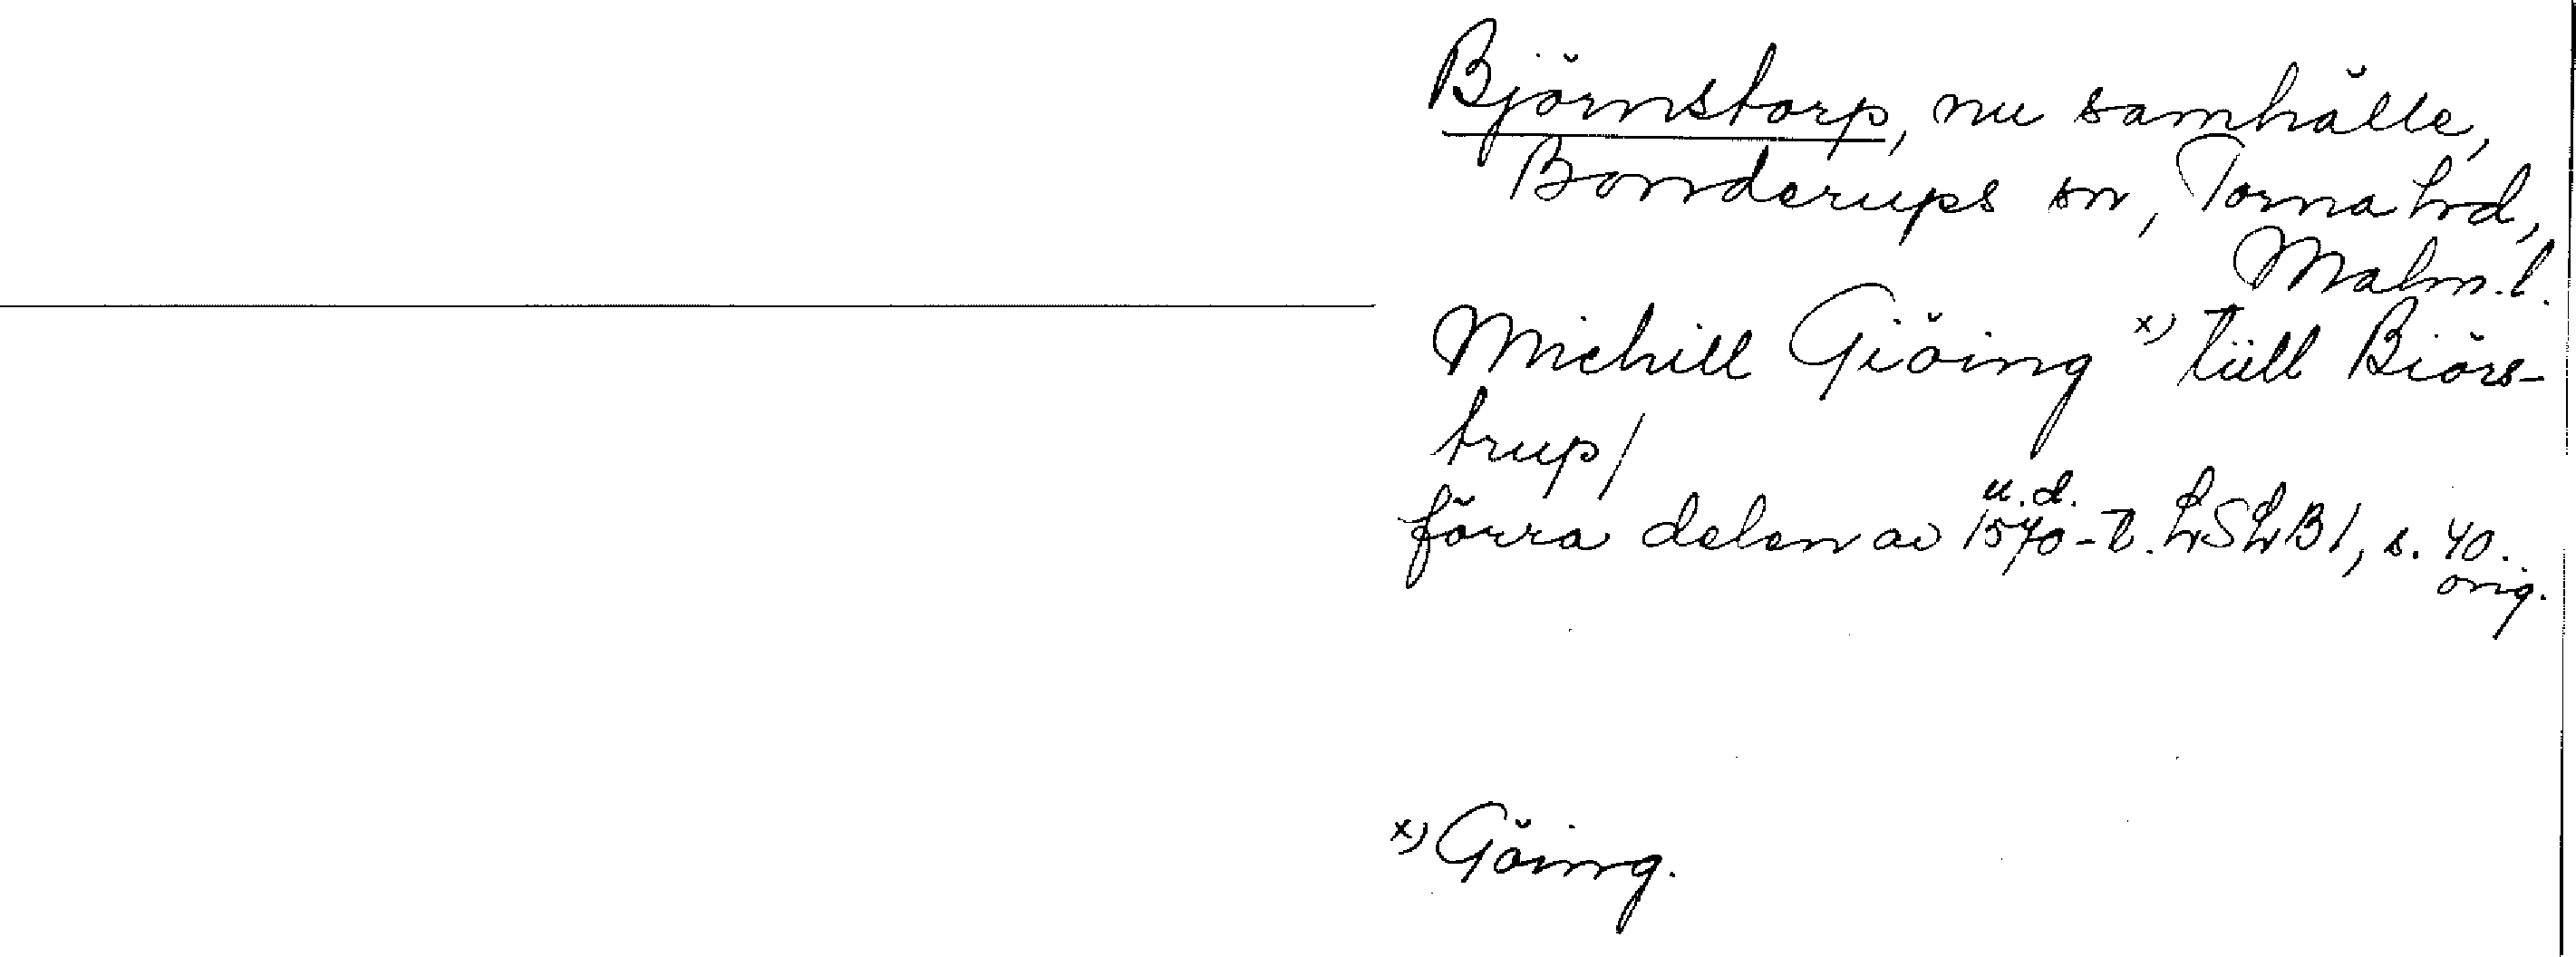 Björnstorp, nu samhälle,
Bonderups sn, Torna hd,
Malm. l.
Michill Giöing x) till Biörs-
trup/
u. d.
förra delen av 1570-t. LSLB1, s. 40.
orig.
x) Göing.